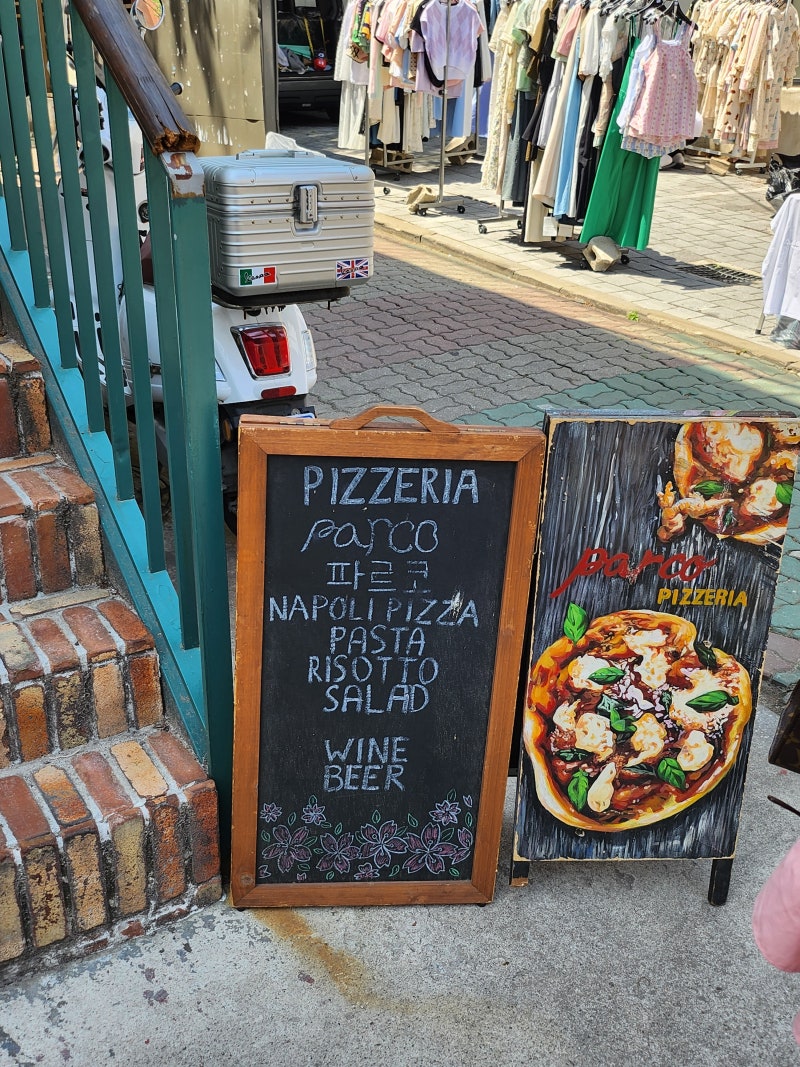 PIZZERIA
parco
파르코
NAPOLI PIZZA
PASTA
RISOTTO
SALAD
WINE
BEER
parco
PIZZERIA
Vespa